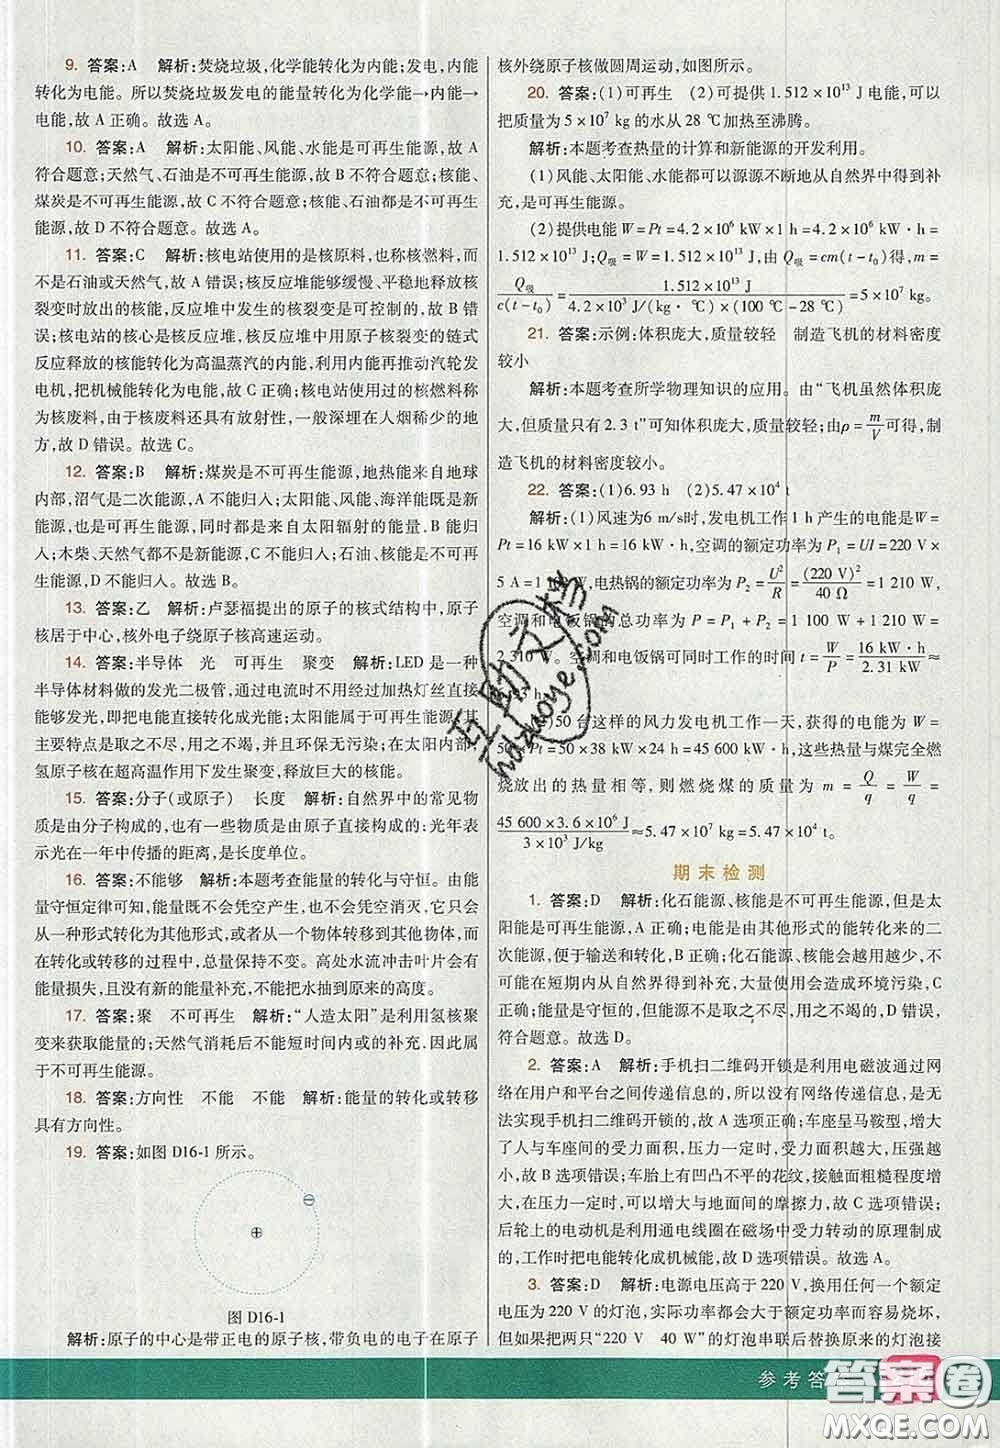 9. 答案:A　解析:焚烧垃圾,化学能转化为内能;发电,内能
转化为电能。所以焚烧垃圾发电的能量转化为化学能→内能→
电能,故 A 正确。故选 A。
10. 答案:A　解析:太阳能、风能、水能是可再生能源,故 A
符合题意;天然气、石油是不可再生能源,故 B 不符合题意;核能、
煤炭是不可再生能源,故 C 不符合题意;核能、石油都是不可再生
能源,故 D 不符合题意。故选 A。
11. 答案:C　解析:核电站使用的是核原料,也称核燃料,而
不是石油或天然气,故 A 错误;核反应堆能够缓慢、平稳地释放核
裂变时放出的核能,反应堆中发生的核裂变是可控制的,故 B 错
误;核电站的核心是核反应堆,核电站中用原子核裂变的链式
反应释放的核能转化为高温蒸汽的内能,利用内能再推动汽轮发
电机,把机械能转化为电能,故 C 正确;核电站使用过的核燃料称
为核废料,由于核废料还具有放射性,一般深埋在人烟稀少的地
方,故 D 错误。故选 C。
12. 答案:B　解析:煤炭是不可再生能源,地热能来自地球
内部,沼气是二次能源,A 不能归入;太阳能、风能、海洋能既是新
能源,也是可再生能源,同时都是来自太阳辐射的能量,B 能归
入;木柴、天然气都不是新能源,C 不能归入;石油、核能是不可再
生能源,D 不能归入。故选 B。
13. 答案:乙　解析:卢瑟福提出的原子的核式结构中,原子
核居于中心,核外电子绕原子核高速运动。
14. 答案:半导体　光　可再生　聚变　解析:LED 是一种
半导体材料做的发光二极管,通过电流时不用经过加热灯丝直接
能发光,即把电能直接转化成光能;太阳能属于可再生能源,其
主要特点是取之不尽,用之不竭,并且环保无污染;在太阳内部,
氢原子核在超高温作用下发生聚变,释放巨大的核能。
15. 答案:分子(或原子)　长度　解析:自然界中的常见物
质是由分子构成的,也有一些物质是由原子直接构成的;光年表
示光在一年中传播的距离,是长度单位。
16. 答案:不能够　解析:本题考查能量的转化与守恒。由能
量守恒定律可知,能量不会凭空产生,也不会凭空消灭,它只会
从一种形式转化为其他形式,或者从一个物体转移到其他物体,
在转化或转移的过程中,总量保持不变。高处水流冲击叶片会有
能量损失,且没有新的能量补充,不能把水抽到原来的高度。
17. 答案:聚　不可再生　解析:“人造太阳”是利用氢核聚
变来获取能量的;天然气消耗后不能短时间内或的补充,因此属
于不可再生能源。
18. 答案:方向性　不能　不能　解析:能量的转化或转移
具有方向性。
19. 答案:如图 D16-1 所示。
图 D16-1
解析:原子的中心是带正电的原子核,带负电的电子在原子
核外绕原子核做圆周运动,如图所示。
20. 答案:(1)可再生　(2)可提供 1.512×10¹³ J 电能,可以
把质量为 5×10⁷ kg 的水从 28 ℃加热至沸腾。
解析:本题考查热量的计算和新能源的开发利用。
(1)风能、太阳能、水能都可以源源不断地从自然界中得到补
充,是可再生能源。
(2)提供电能 W=Pt=4.2×10⁶ kW×1 h=4.2×10⁶ kW·h=
1.512×10¹³ J,Q吸=W=1.512×10¹³ J,由 Q吸=cm(t-t₀)得,m=
Q吸/c(t-t₀)=1.512×10¹³ J/4.2×10³ J/(kg·℃)×(100 ℃-28 ℃)=5×10⁷ kg。
21. 答案:示例:体积庞大,质量较轻　制造飞机的材料密度
较小
解析:本题考查所学物理知识的应用。由“飞机虽然体积庞
大,但质量只有 2.3 t”可知体积庞大,质量较轻;由ρ=m/V可得,制
造飞机的材料密度较小。
22. 答案:(1)6.93 h　(2)5.47×10⁴ t
解析:(1)风速为6 m/s时,发电机工作 1 h 产生的电能是 W=
Pt=16 kW×1 h=16 kW·h,空调的额定功率为 P₁=UI=220 V
×5 A=1 100 W,电热锅的额定功率为 P₂=U²/R=(220 V)²/40 Ω=1 210 W,
空调和电饭锅的总功率为 P=P₁+P₂=1 100 W+1 210 W=
2 310 W。空调和电饭锅可同时工作的时间 t=W/P=16 kW·h/2.31 kW≈
6.93 h
(2)50 台这样的风力发电机工作一天,获得的电能为 W=
50×Pt=50×38 kW×24 h=45 600 kW·h,这些热量与煤完全燃
烧放出的热量相等,则燃烧煤的质量为 m=Q/q=W/q=
45 600×3.6×10⁶ J/3×10³ J/kg≈5.47×10⁷ kg=5.47×10⁴ t。
期末检测
1. 答案:D　解析:化石能源、核能是不可再生能源,但是太
阳能是可再生能源,A 正确;电能是由其他形式的能转化来的二
次能源,便于输送和转化,B 正确;化石能源、核能会越用越少,不
可能在短期内从自然界得到,大量使用还会造成环境污染,C 正
确;能量是守恒的,但能源不是取之不尽,用之不竭的,D 错误,
符合题意。故选 D。
2. 答案:A　解析:手机扫二维码开锁是利用电磁波通过网
络在用户和平台之间传递信息的,所以没有网络传递信息,是无
法实现手机扫二维码开锁的,故 A 选项正确;车座呈马鞍型,增大
人与车座间的受力面积,压力一定时,受力面积越大,压强越
小,故 B 选项错误;车胎上有凹凸不平的花纹,接触面粗糙程度增
大,在压力一定时,可以增大与地面间的摩擦力,故 C 选项错误;
后轮上的电动机是利用通电线圈在磁场中受力转动的原理制成
的,工作时把电能转化成机械能,故 D 选项错误。故选 A。
3. 答案:D　解析:电源电压高于 220 V,换用任何一个额定
电压为 220 V 的灯泡,实际功率都会大于额定功率而容易烧坏,
但如果把两只“220 V　40 W”的灯泡串联后替换原来的灯泡接
参考答案
答案圈
MXQE.COM
互助文档
hdzuoye.com